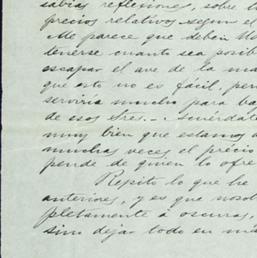 sabias reflexiones, sobre l
précios relativos segun el
Me parece que deben Us
tenerse cuanto sea posib
escapar el ave de la ma
que esto no es fácil, per
serviria mucho para ba
de esos Sres... Acuérdate
muy bien que estamos a
muchas veces el précio
pende de quien lo ofre
Repito lo que he
anteriores, y es que nosot
pletamente á oscuras,
sino dejar todo en ma